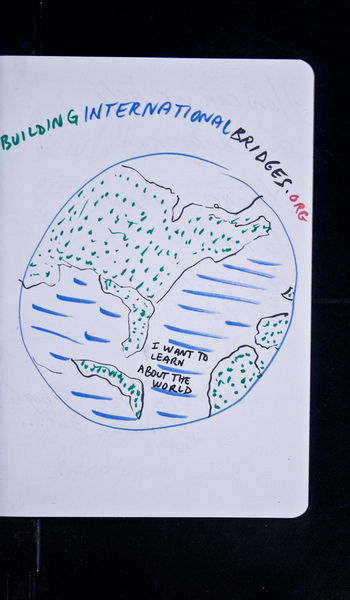 BUILDING INTERNATIONAL BRIDGES.ORG
I WANT TO
LEARN
ABOUT THE
WORLD